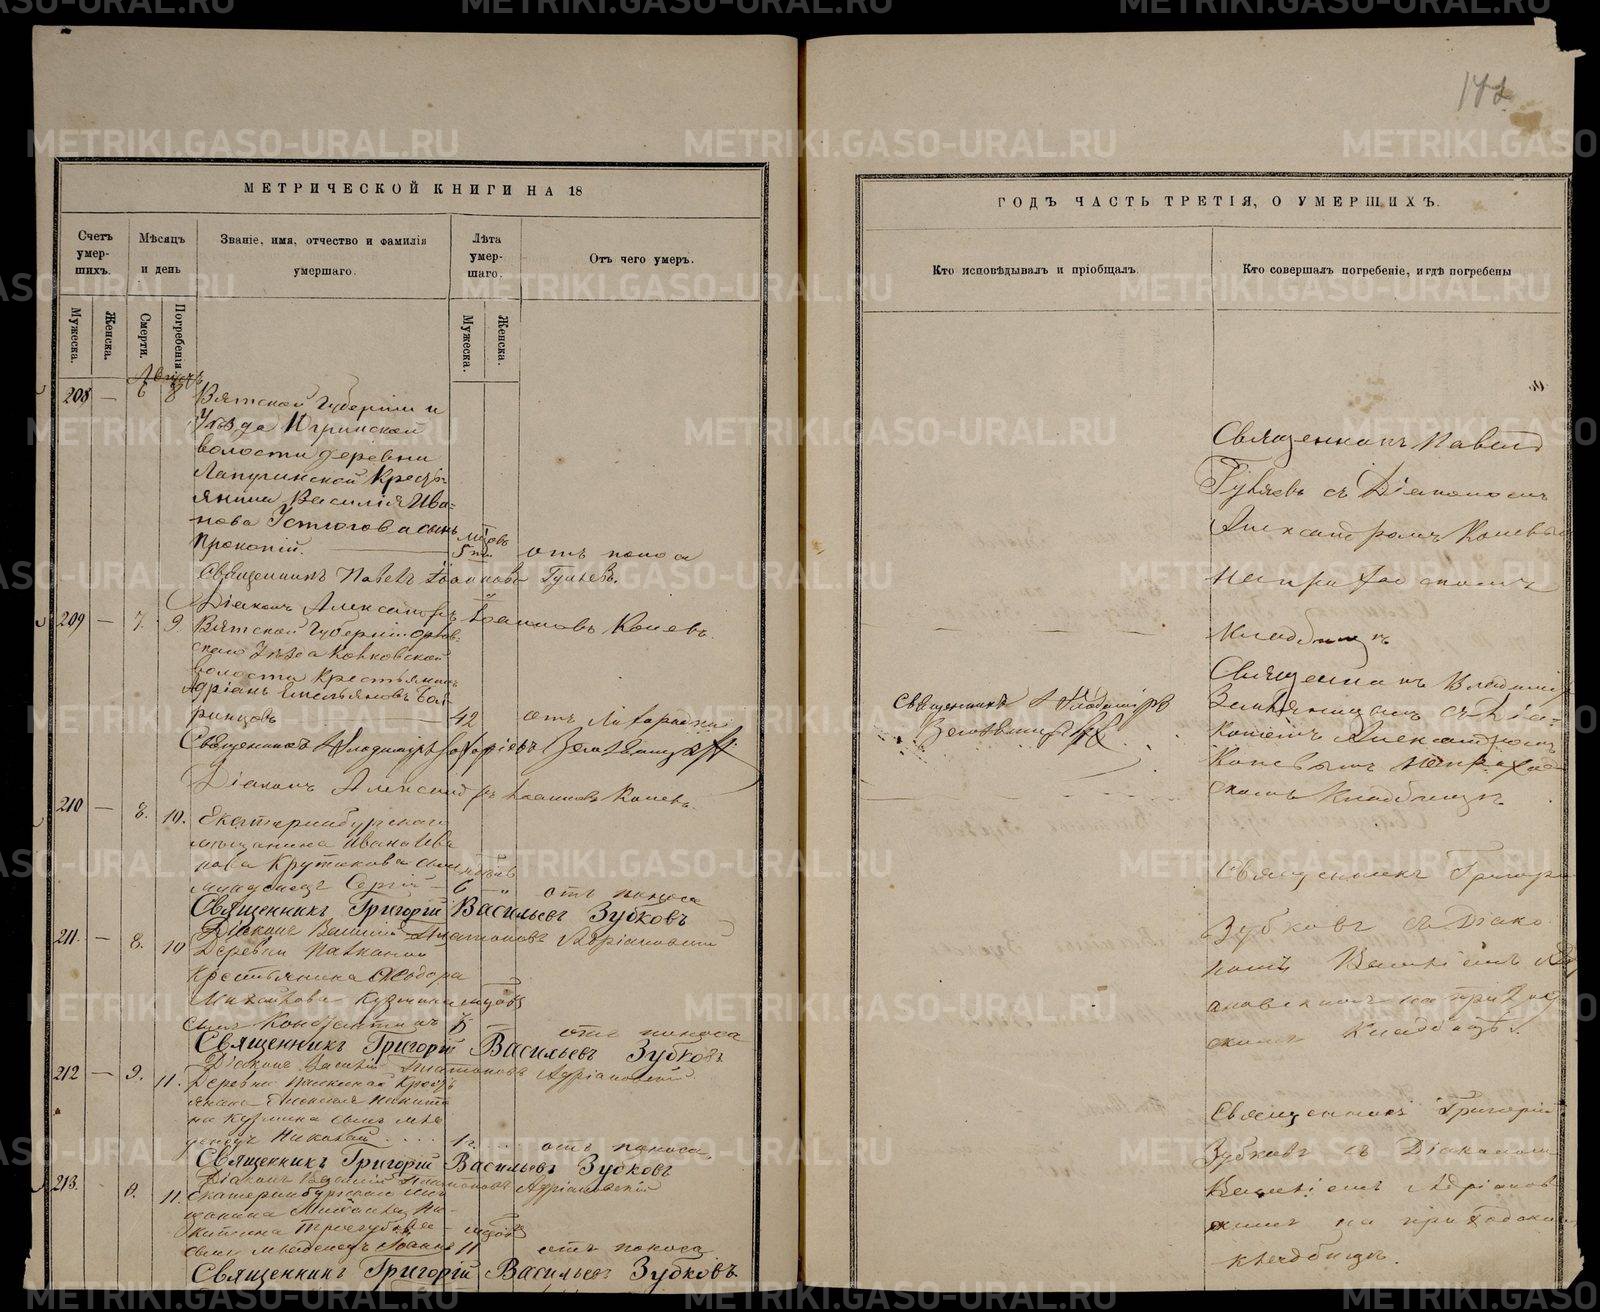 МЕТРИЧЕСКОЙ КНИГИ НА 18
Счетъ умер- шихъ.
Мѣсяцъ и день
Званіе, имя, отчество и фамилія умершаго.
Лѣта умер- шаго.
Отъ чего умеръ.
Мужеска.
Женска.
Смерти.
Погребенія.
Мужеска.
Женска.
Августъ
208 — 6 8 Вятской Губерніи и
Уѣзда Югринской
волости деревни
Лапугинской Кресть-
янина Василія Ива-
нова Устюгова сынъ
Прокопій. 5 отъ поноса
Священникъ Павелъ Іоанновъ Гуляевъ.
Діаконъ Александръ Іоанновъ Коневъ.
209 — 7. 9. Вятской Губерніи Орлов-
скаго Уѣзда Ковковской
волости Крестьянинъ
Адріанъ Емельяновъ
ринцовъ 42 отъ
Священникъ Владиміръ Земляницынъ
Діаконъ Александръ Іоанновъ Коневъ
210 — 8. 10. Екатеринбургскаго
мѣщанина Ивана Ива
нова Крутикова сынъ
младенецъ Сергій — 6 — отъ поноса
Священникъ Григорій Васильевъ Зубковъ
Діаконъ Василій Платоновъ Адріановскій
211. — 8. 10 Деревни
Крестьянина Ѳеодора
Михайлова
сынъ Константинъ отъ поноса
Священникъ Григорій Васильевъ Зубковъ
Діаконъ Василій Платоновъ Адріановскій.
212 — 9. 11. Деревни Крест
янина Никити
на сынъ мла
денецъ Николай 1 г. отъ поноса
Священникъ Григорій Васильевъ Зубковъ
Діаконъ Василій Платоновъ Адріановскій
213. 9. 11. Екатеринбургскаго мѣ
щанина Михаила Ни-
китина
сынъ младенецъ Іоаннъ 11 отъ поноса
Священникъ Григорій Васильевъ Зубковъ
ГОДЪ ЧАСТЬ ТРЕТІЯ, О УМЕРШИХЪ.
Кто исповѣдывалъ и пріобщалъ.
Кто совершалъ погребеніе, и гдѣ погребены
Священникъ Павелъ
Гуляевъ съ Діакономъ
Александромъ Коневымъ
на приходскомъ
кладбищѣ
Священникъ Владиміръ
Земляницынъ
Священникъ Владиміръ
Земляницынъ съ Діа-
кономъ Александромъ
Коневымъ на приход
скомъ кладбищѣ
Священникъ Григор
Зубковъ съ Діако
номъ Василіемъ Адрі
ановскимъ на приход
скомъ кладбищѣ.
Священникъ Григорій
Зубковъ съ Діакономъ
Василіемъ Адріанов
скимъ на приходском
кладбищѣ.
METRIKI.GASO-URAL.RU